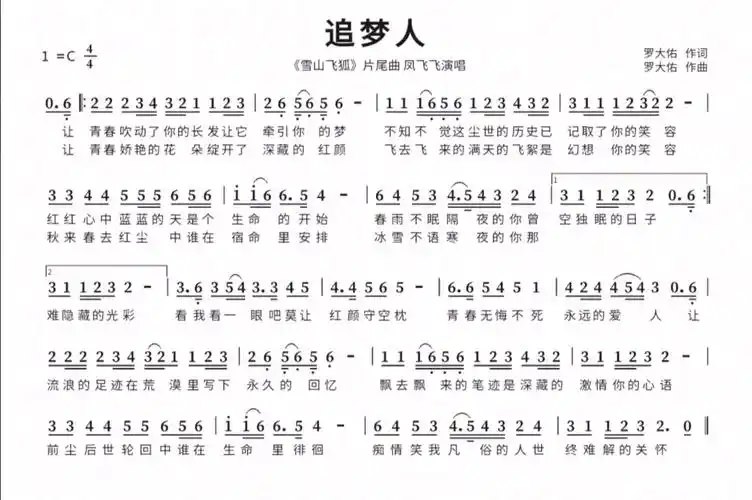 追梦人
1 =C 4/4
《雪山飞狐》片尾曲 凤飞飞演唱
罗大佑 作词
罗大佑 作曲
0. 6 ‖: 2 2 2 3 4 3 2 1 1 2 3 | 2 6 5 6 5 - | 1 1 1 6 5 6 1 1 2 4 3 2 | 3 1 1 1 2 3 2 2 - |
让 青春吹动了你的长发让它 牵引你 的梦 不知不 觉这尘世的历史已 记取了你的笑 容
让 青春娇艳的花 朵绽开了 深藏的 红颜 飞去飞 来的满天的飞絮是 幻想 你的笑 容
3 3 4 4 5 5 5 6 5 6 | i i 6 6. 5 4 - | 6 4 5 3 4. 5 4 3 2 4 | 1 3 1 1 2 3 2 0. 6 :‖
红红心中蓝蓝的天是个 生命 的开始 春雨不眠隔 夜的你曾 空独眠的日子
秋来春去红尘 中谁在 宿命 里安排 冰雪不语寒 夜的你那
2 3 1 1 2 3 2 2 - | 3. 6 3 5 4 3. 3 4 5 | 4. 4 5 6 5 - | 6. 6 5 4 5 1 | 4 2 4 4 5 4 3 0. 6 |
难隐藏的光彩 看我看一 眼吧莫让 红颜守空枕 青春无悔不死 永远的爱 人 让
2 2 2 2 3 4 3 2 1 1 2 3 | 2 6 5 6 5 - | 1 1 1 6 5 6 1 1 2 4 3 2 | 3 1 1 1 2 3 2 - |
流浪的足迹在荒 漠里写下 永久的 回忆 飘去飘 来的笔迹是深藏的 激情你的心语
3 3 4 4 5 5 5 6 5 6 | i i 6 6. 5 4 - | 6 4 5 3 4. 5 4 3 2 4 | 3 1 1 2 3 2 - 0 ‖
前尘后世轮回中谁在 生命 里徘徊 痴情笑我凡 俗的人世 终难解的关怀